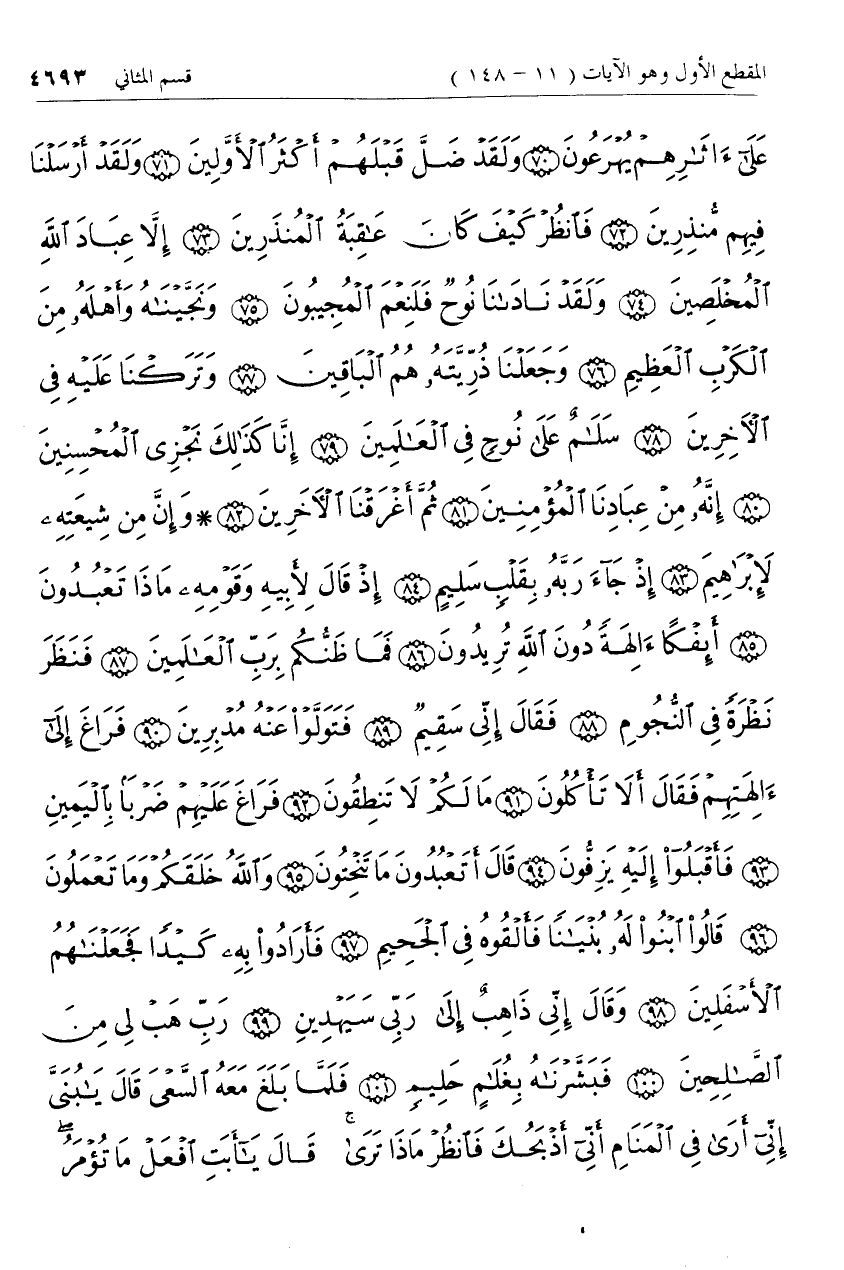 المقطع الأول وهو الآيات ( ١١ - ١٤٨ ) قسم المثاني ٤٦٩٣
عَلَىٰٓ ءَاثَٰرِهِمْ يُهْرَعُونَ ٧٠ وَلَقَدْ ضَلَّ قَبْلَهُمْ أَكْثَرُ ٱلْأَوَّلِينَ ٧١ وَلَقَدْ أَرْسَلْنَا
فِيهِم مُّنذِرِينَ ٧٢ فَٱنظُرْ كَيْفَ كَانَ عَٰقِبَةُ ٱلْمُنذَرِينَ ٧٣ إِلَّا عِبَادَ ٱللَّهِ
ٱلْمُخْلَصِينَ ٧٤ وَلَقَدْ نَادَىٰنَا نُوحٌ فَلَنِعْمَ ٱلْمُجِيبُونَ ٧٥ وَنَجَّيْنَٰهُ وَأَهْلَهُۥ مِنَ
ٱلْكَرْبِ ٱلْعَظِيمِ ٧٦ وَجَعَلْنَا ذُرِّيَّتَهُۥ هُمُ ٱلْبَاقِينَ ٧٧ وَتَرَكْنَا عَلَيْهِ فِى
ٱلْأٓخِرِينَ ٧٨ سَلَٰمٌ عَلَىٰ نُوحٍ فِى ٱلْعَٰلَمِينَ ٧٩ إِنَّا كَذَٰلِكَ نَجْزِى ٱلْمُحْسِنِينَ
٨٠ إِنَّهُۥ مِنْ عِبَادِنَا ٱلْمُؤْمِنِينَ ٨١ ثُمَّ أَغْرَقْنَا ٱلْأٓخَرِينَ ٨٢ * وَإِنَّ مِن شِيعَتِهِۦ
لَإِبْرَٰهِيمَ ٨٣ إِذْ جَآءَ رَبَّهُۥ بِقَلْبٍ سَلِيمٍ ٨٤ إِذْ قَالَ لِأَبِيهِ وَقَوْمِهِۦ مَاذَا تَعْبُدُونَ
٨٥ أَئِفْكًا ءَالِهَةً دُونَ ٱللَّهِ تُرِيدُونَ ٨٦ فَمَا ظَنُّكُم بِرَبِّ ٱلْعَٰلَمِينَ ٨٧ فَنَظَرَ
نَظْرَةً فِى ٱلنُّجُومِ ٨٨ فَقَالَ إِنِّى سَقِيمٌ ٨٩ فَتَوَلَّوْا۟ عَنْهُ مُدْبِرِينَ ٩٠ فَرَاغَ إِلَىٰٓ
ءَالِهَتِهِمْ فَقَالَ أَلَا تَأْكُلُونَ ٩١ مَا لَكُمْ لَا تَنطِقُونَ ٩٢ فَرَاغَ عَلَيْهِمْ ضَرْبًۢا بِٱلْيَمِينِ
٩٣ فَأَقْبَلُوٓا۟ إِلَيْهِ يَزِفُّونَ ٩٤ قَالَ أَتَعْبُدُونَ مَا تَنْحِتُونَ ٩٥ وَٱللَّهُ خَلَقَكُمْ وَمَا تَعْمَلُونَ
٩٦ قَالُوا۟ ٱبْنُوا۟ لَهُۥ بُنْيَٰنًا فَأَلْقُوهُ فِى ٱلْجَحِيمِ ٩٧ فَأَرَادُوا۟ بِهِۦ كَيْدًا فَجَعَلْنَٰهُمُ
ٱلْأَسْفَلِينَ ٩٨ وَقَالَ إِنِّى ذَاهِبٌ إِلَىٰ رَبِّى سَيَهْدِينِ ٩٩ رَبِّ هَبْ لِى مِنَ
ٱلصَّٰلِحِينَ ١٠٠ فَبَشَّرْنَٰهُ بِغُلَٰمٍ حَلِيمٍ ١٠١ فَلَمَّا بَلَغَ مَعَهُ ٱلسَّعْىَ قَالَ يَٰبُنَىَّ
إِنِّىٓ أَرَىٰ فِى ٱلْمَنَامِ أَنِّىٓ أَذْبَحُكَ فَٱنظُرْ مَاذَا تَرَىٰ ۚ قَالَ يَٰٓأَبَتِ ٱفْعَلْ مَا تُؤْمَرُ ۖ